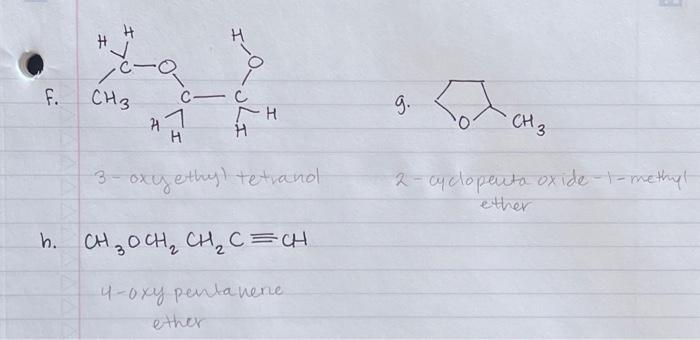 H H H
C-O O
f. CH3 C-C H
H H H
3-oxyethyl tetranol
g. O CH3
2-cyclopenta oxide-1-methyl
ether
h. CH3OCH2CH2C≡CH
4-oxy pentanene
ether